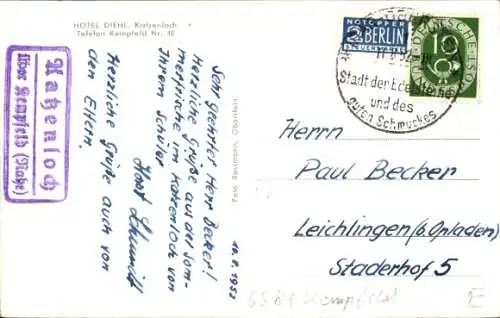 HOTEL DIEHL, Katzenloch
Telefon Kempfeld Nr. 40
Katzenloch
über Kempfeld (Nahe)
10.8.1952
Sehr geehrter Herr Becker!
Herzliche Grüße aus der Som-
merfrische im Katzenloch von
Ihrem Schüler
Horst Schmidt
Herzliche Grüße auch von
den Eltern.
Foto Rossmann, Oberstein
NOTOPFER
2 BERLIN
STEUERMARKE
DEUTSCHE POST
10
Stadt der Edelsteine
und des
guten Schmuckes
Herrn
Paul Becker
Leichlingen (b. Opladen)
Staderhof 5
Kempfeld
E